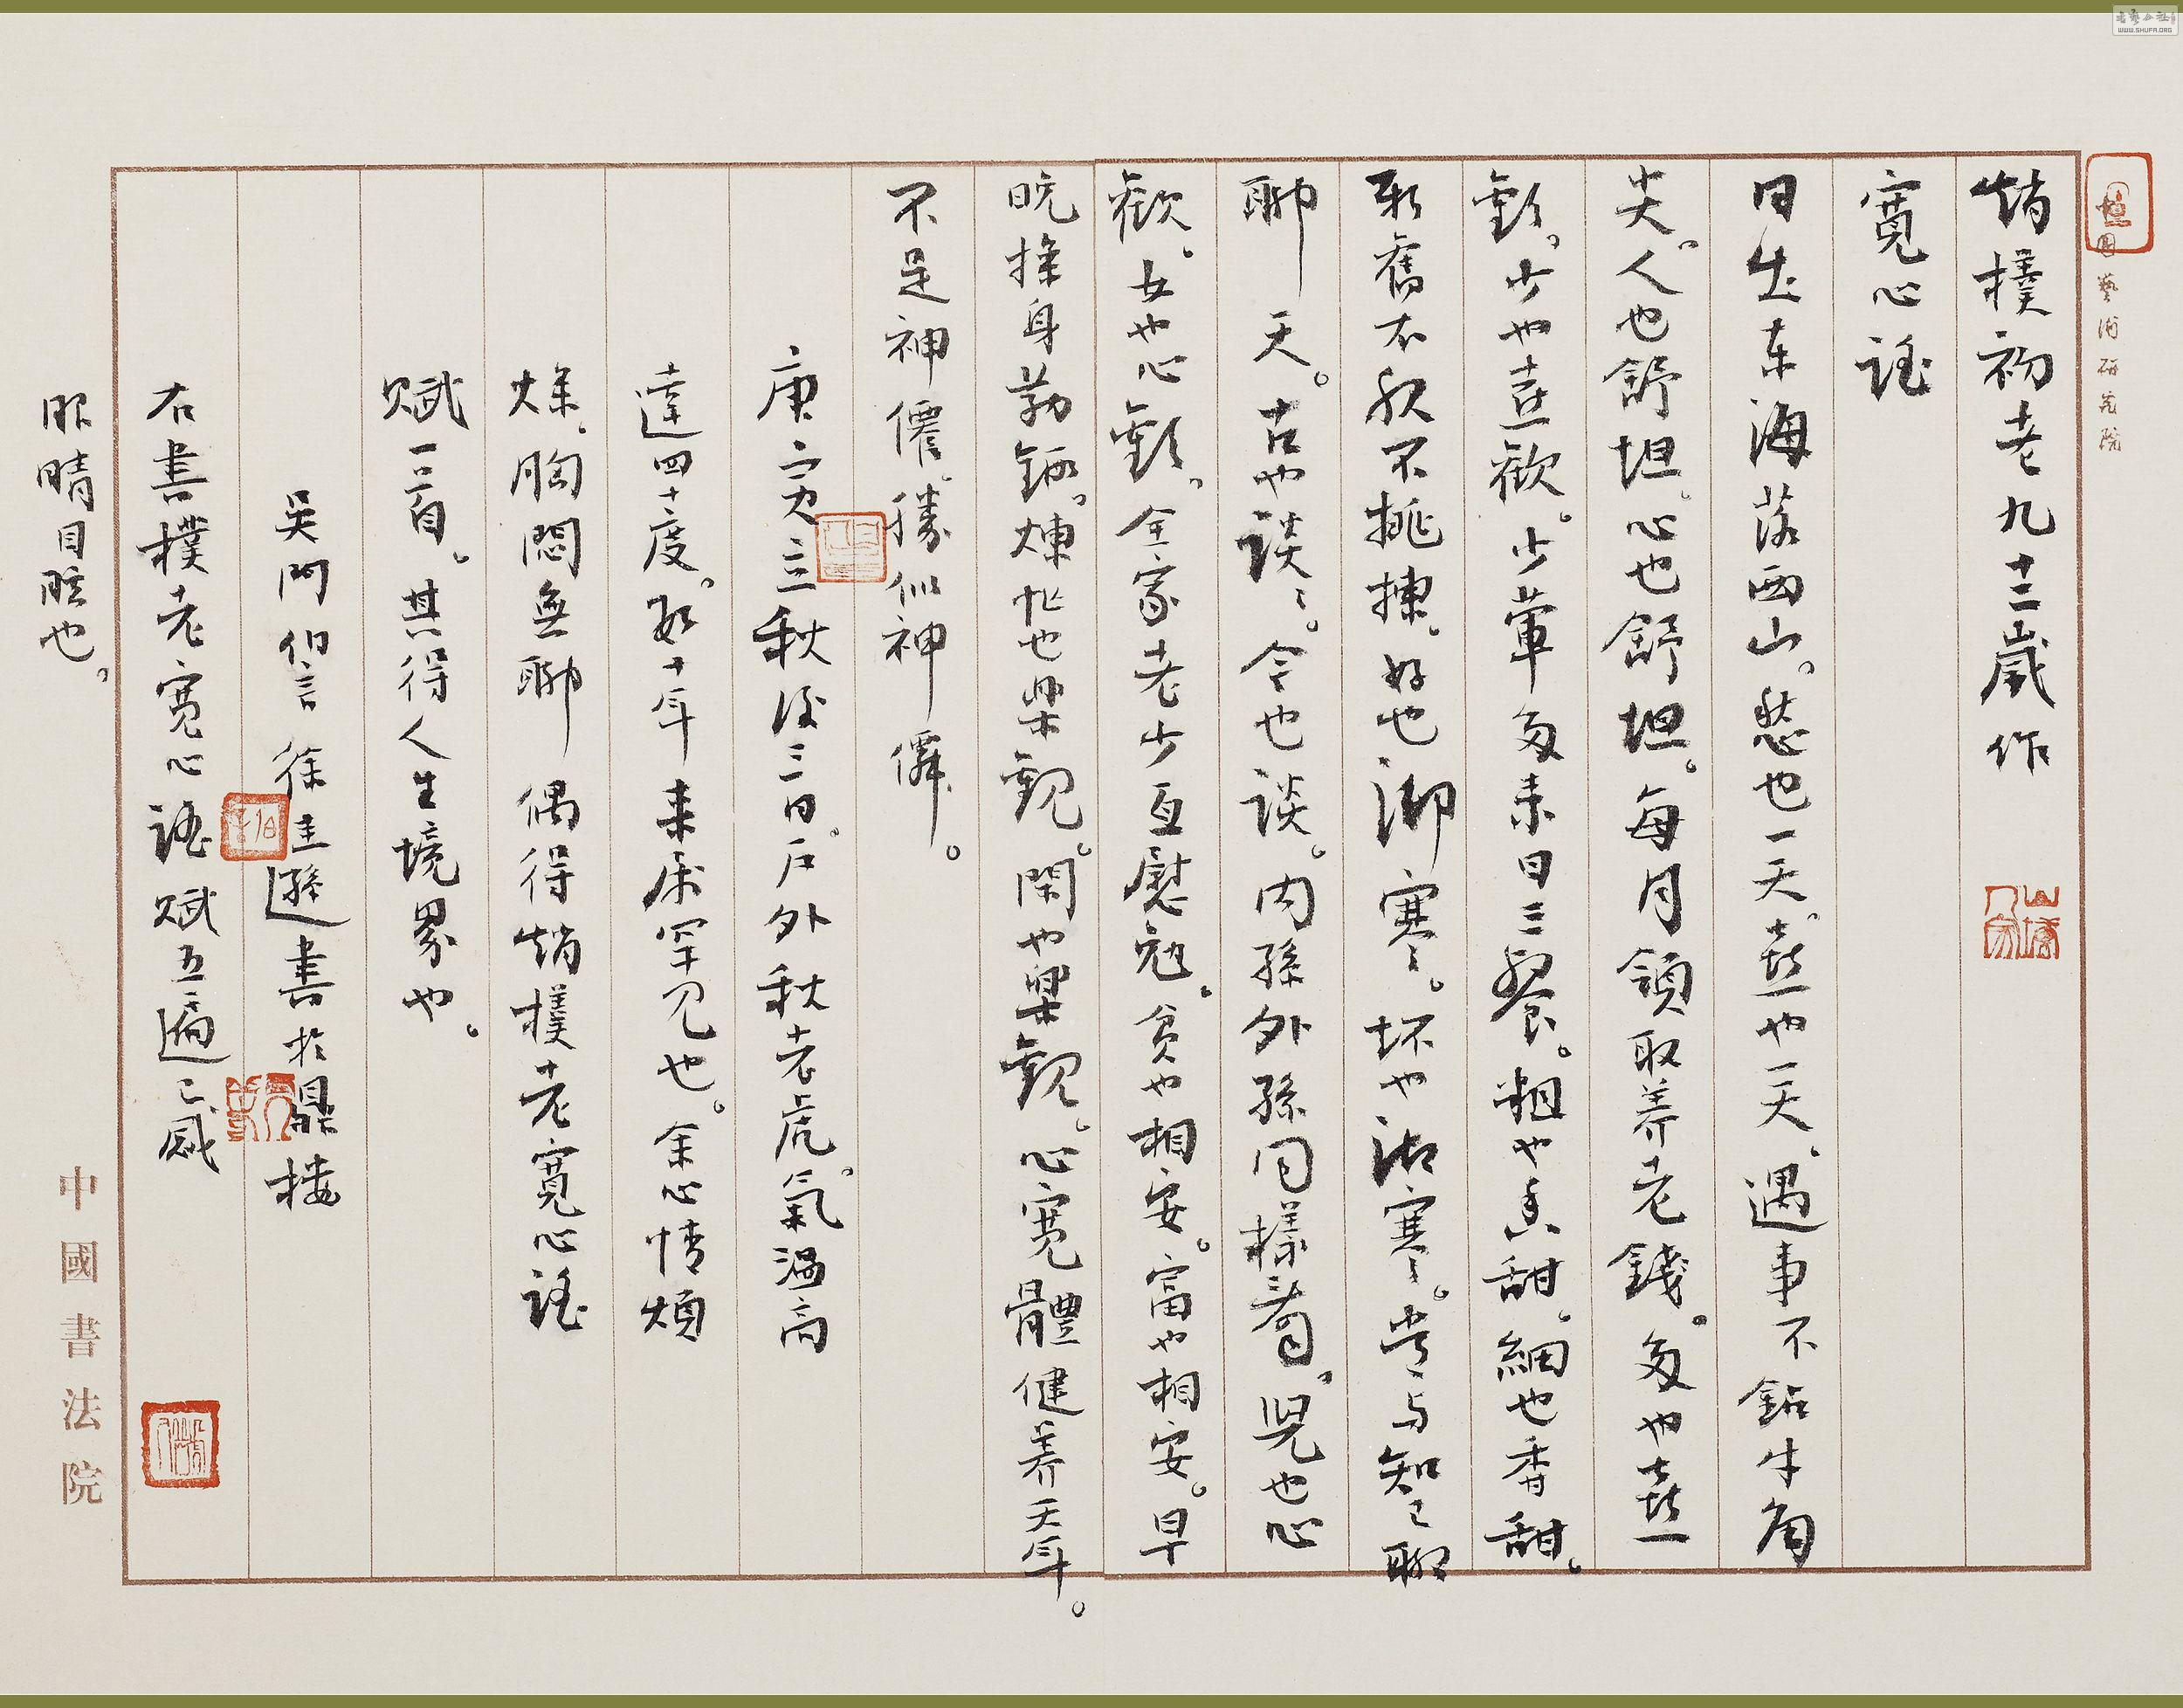 書藝公社
WWW.SHUFA.ORG
國藝術研究院
趙樸初老九十二歲作
寬心謠
日出東海落西山。愁也一天，喜也一天，遇事不鉆牛角
尖。人也舒坦，心也舒坦。每月領取养老錢。多也喜
歡，少也喜歡。少葷多素日三餐。粗也香甜，細也香甜。
新舊衣服不挑揀，好也御寒。坏也御寒。常与知己聊
聊天。古也談〻。今也談〻。內孫外孫同樣看，兒也心
歡。女也心歡，全家老少互慰勉。貧也相安。富也相安。早
晚操身勤鍛煉，忙也樂觀。閑也樂觀。心寬體健养天年。
不是神僊，勝似神僊。
庚寅立秋後三日，戶外秋老虎，氣溫高
達四十度，數十年來屬罕見也。余心情煩
燥，胸悶無聊偶得趙樸老寬心謠
賦一二首。其得人生境界也。
吳門伯言徐圭遜書於鼎樓
右書樸老寬心謠賦五遍已感
眼睛目眩也。
中國書法院